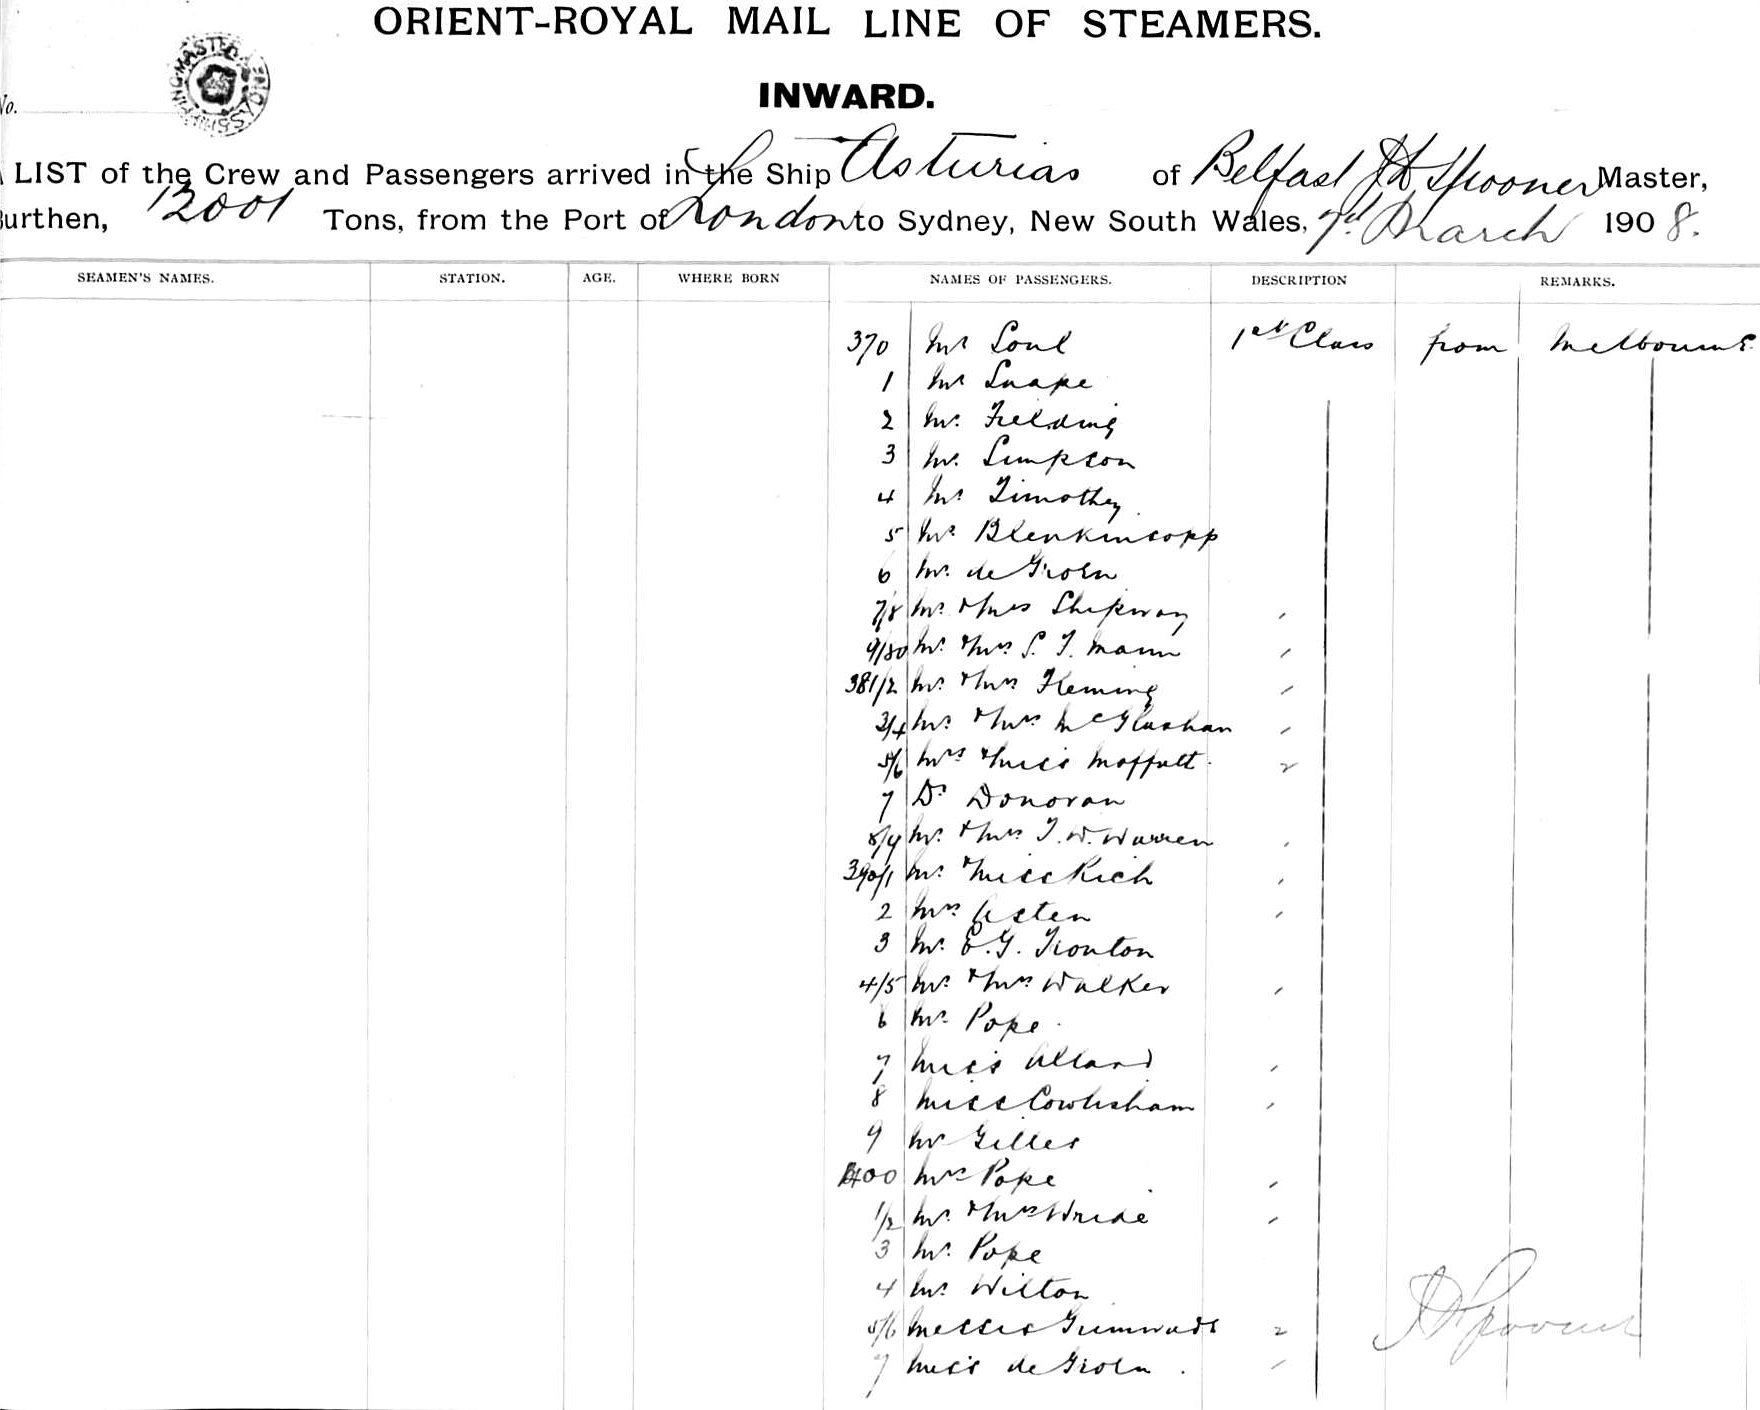 ORIENT-ROYAL MAIL LINE OF STEAMERS.
INWARD.
No.
LIST of the Crew and Passengers arrived in the Ship Asturias of Belfast J H Spooner Master,
Burthen, 12001 Tons, from the Port of London to Sydney, New South Wales, 7th March 1908.
SEAMEN'S NAMES. STATION. AGE. WHERE BORN NAMES OF PASSENGERS. DESCRIPTION REMARKS.
370 Mr Soul 1st Class from Melbourne.
1 Mr Snape
2 Mr. Fielding
3 Mr. Simpson
4 Mr Timothy
5 Mr. Blenkinsopp
6 Mr. de Groen
7/8 Mr. & Mrs Shipway
9/80 Mr. & Mrs S. T. Mann
381/2 Mr. & Mrs Fleming
3/4 Mr. & Mrs McGlashan
5/6 Mrs & Miss Moffatt
7 Dr Donovan
8/9 Mr. & Mrs T. W. Warren
390/1 Mr. & Miss Rich
2 Mrs Asten
3 Mr. E. G. Trouton
4/5 Mr. & Mrs Walker
6 Mr. Pope
7 Miss Allard
8 Miss Cowlisham
9 Mr Gilles
400 Mrs Pope
1/2 Mr. & Mrs Wride
3 Mr. Pope
4 Mr. Wilton
5/6 Messrs Grimwade
7 Miss de Groen
J H Spooner